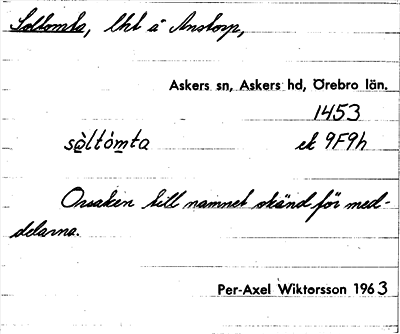 Soltomta, lht å Anstorp,
Askers sn, Askers hd, Örebro län.
1453
sòltómta ek 9F9h
Orsaken till namnet okänd för med-
delarna.
Per-Axel Wiktorsson 1963